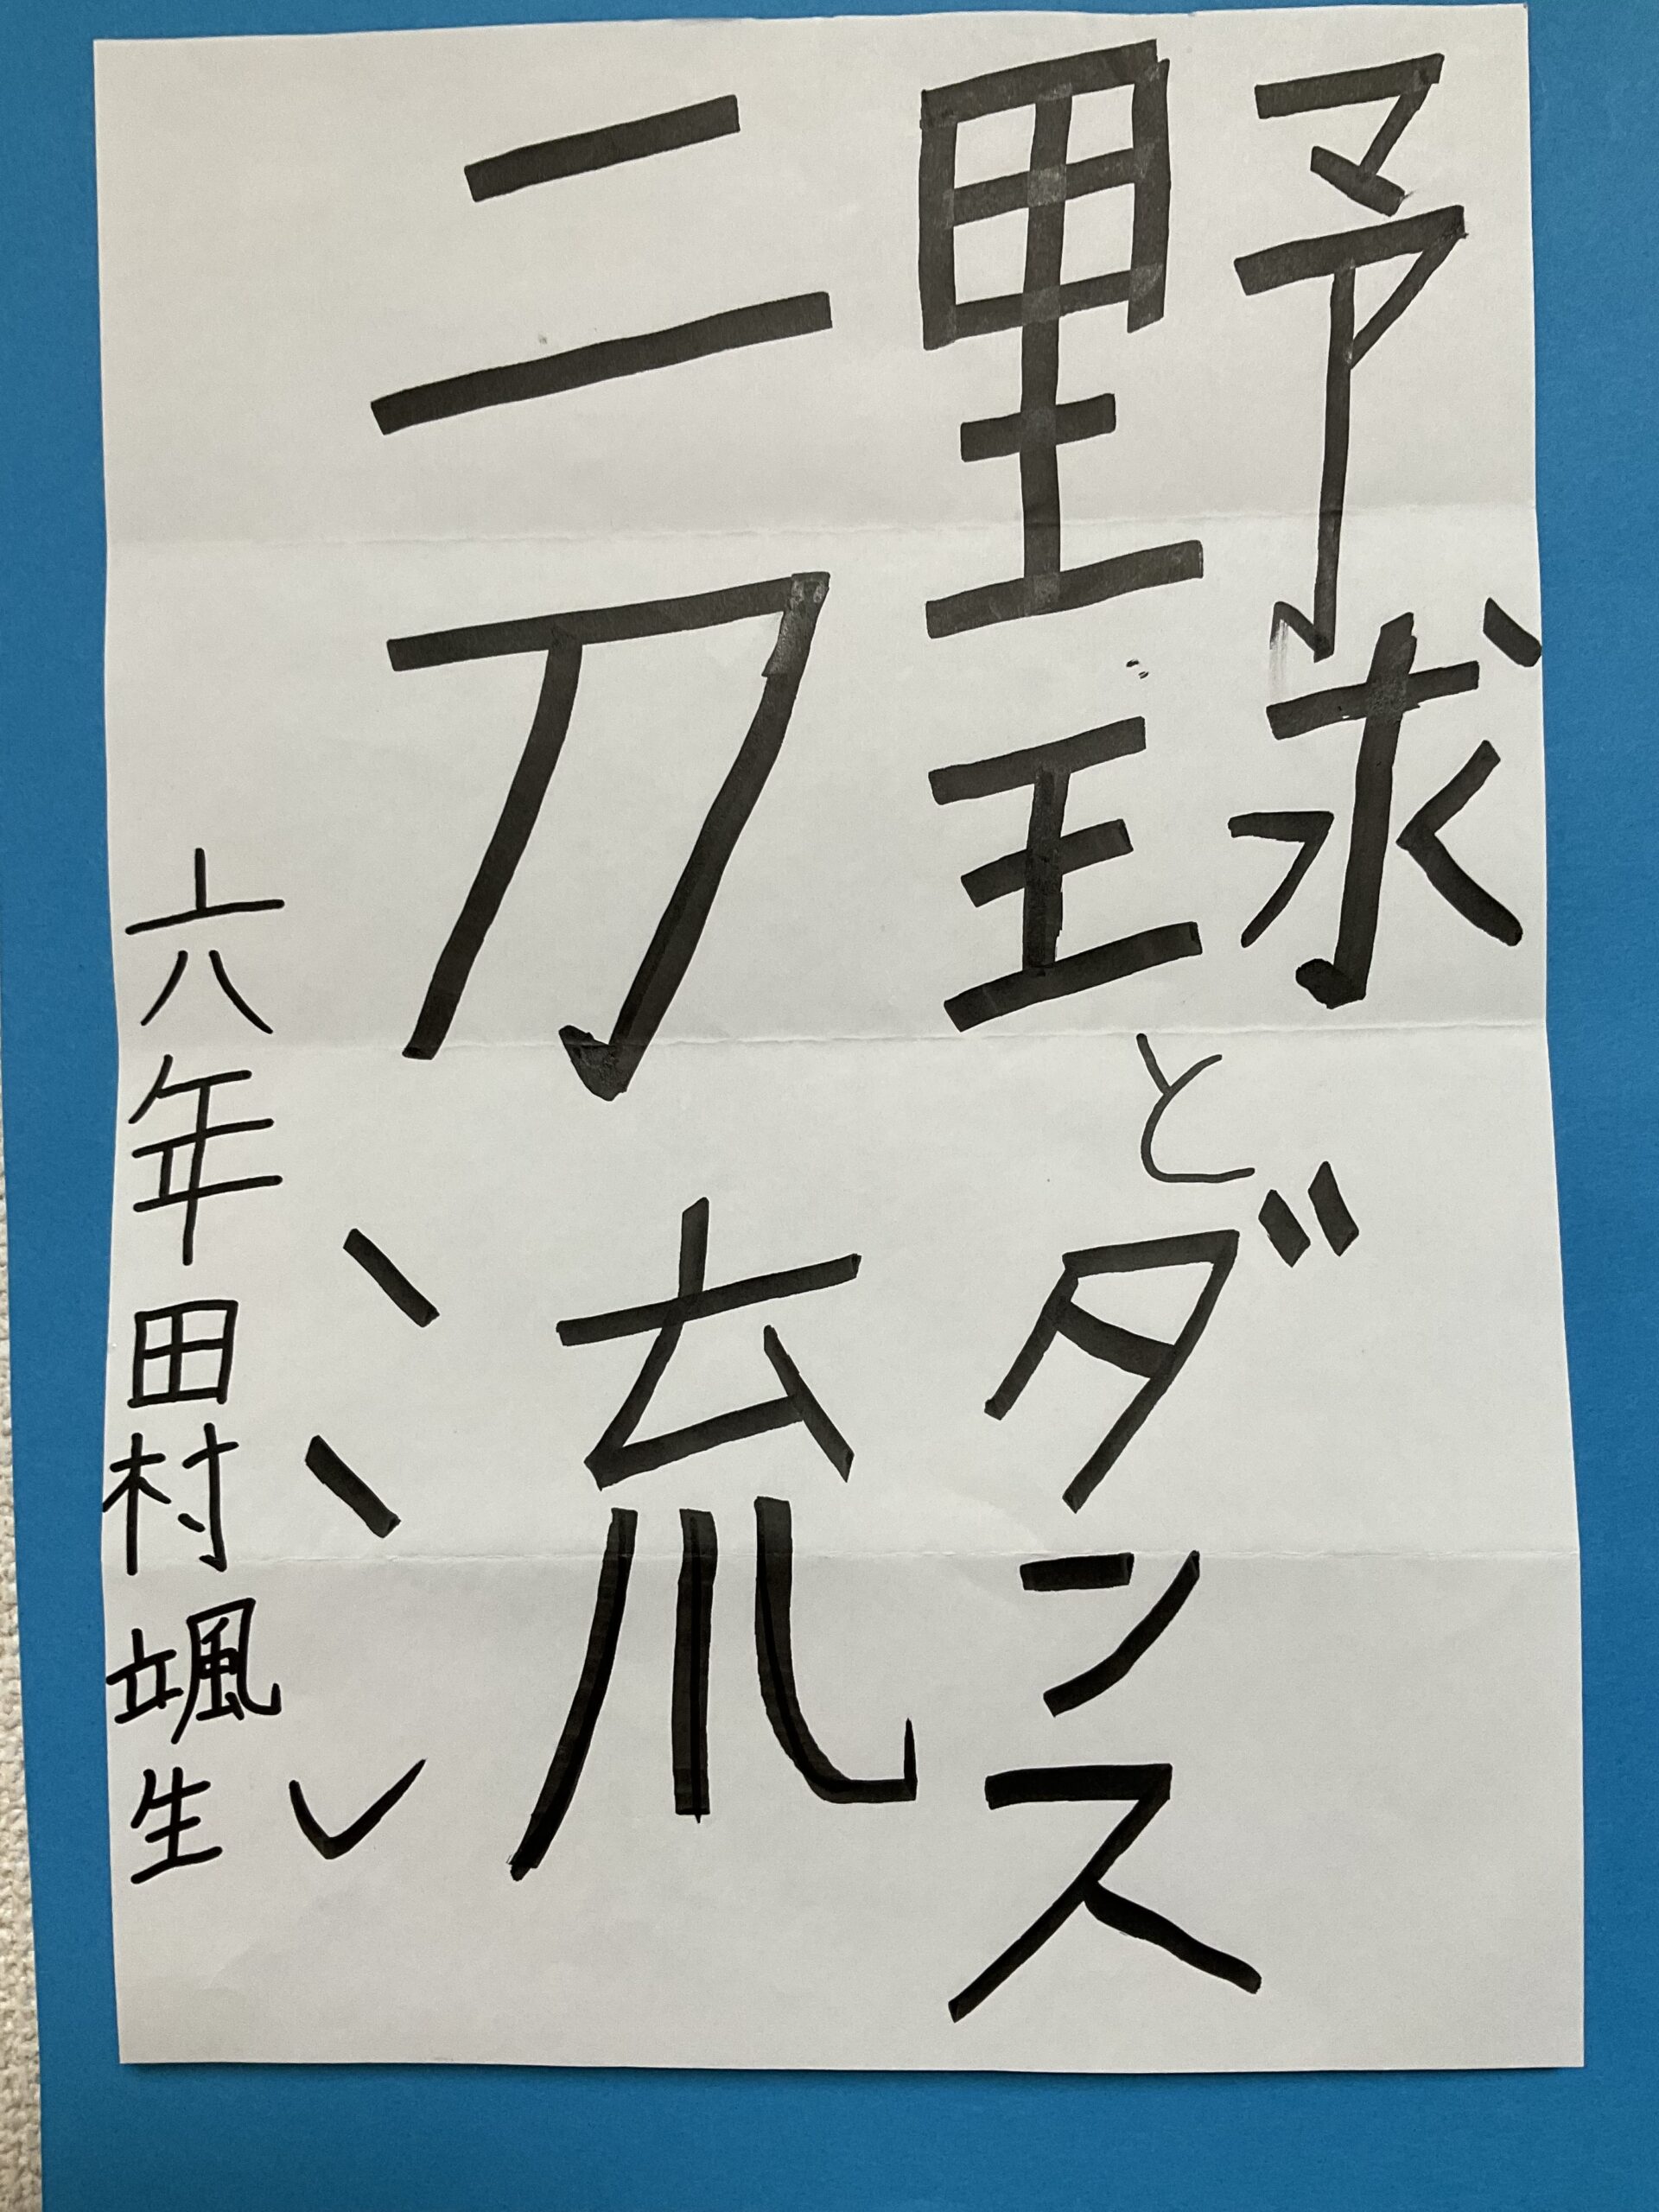 野球とダンス
二刀流
六年田村颯生